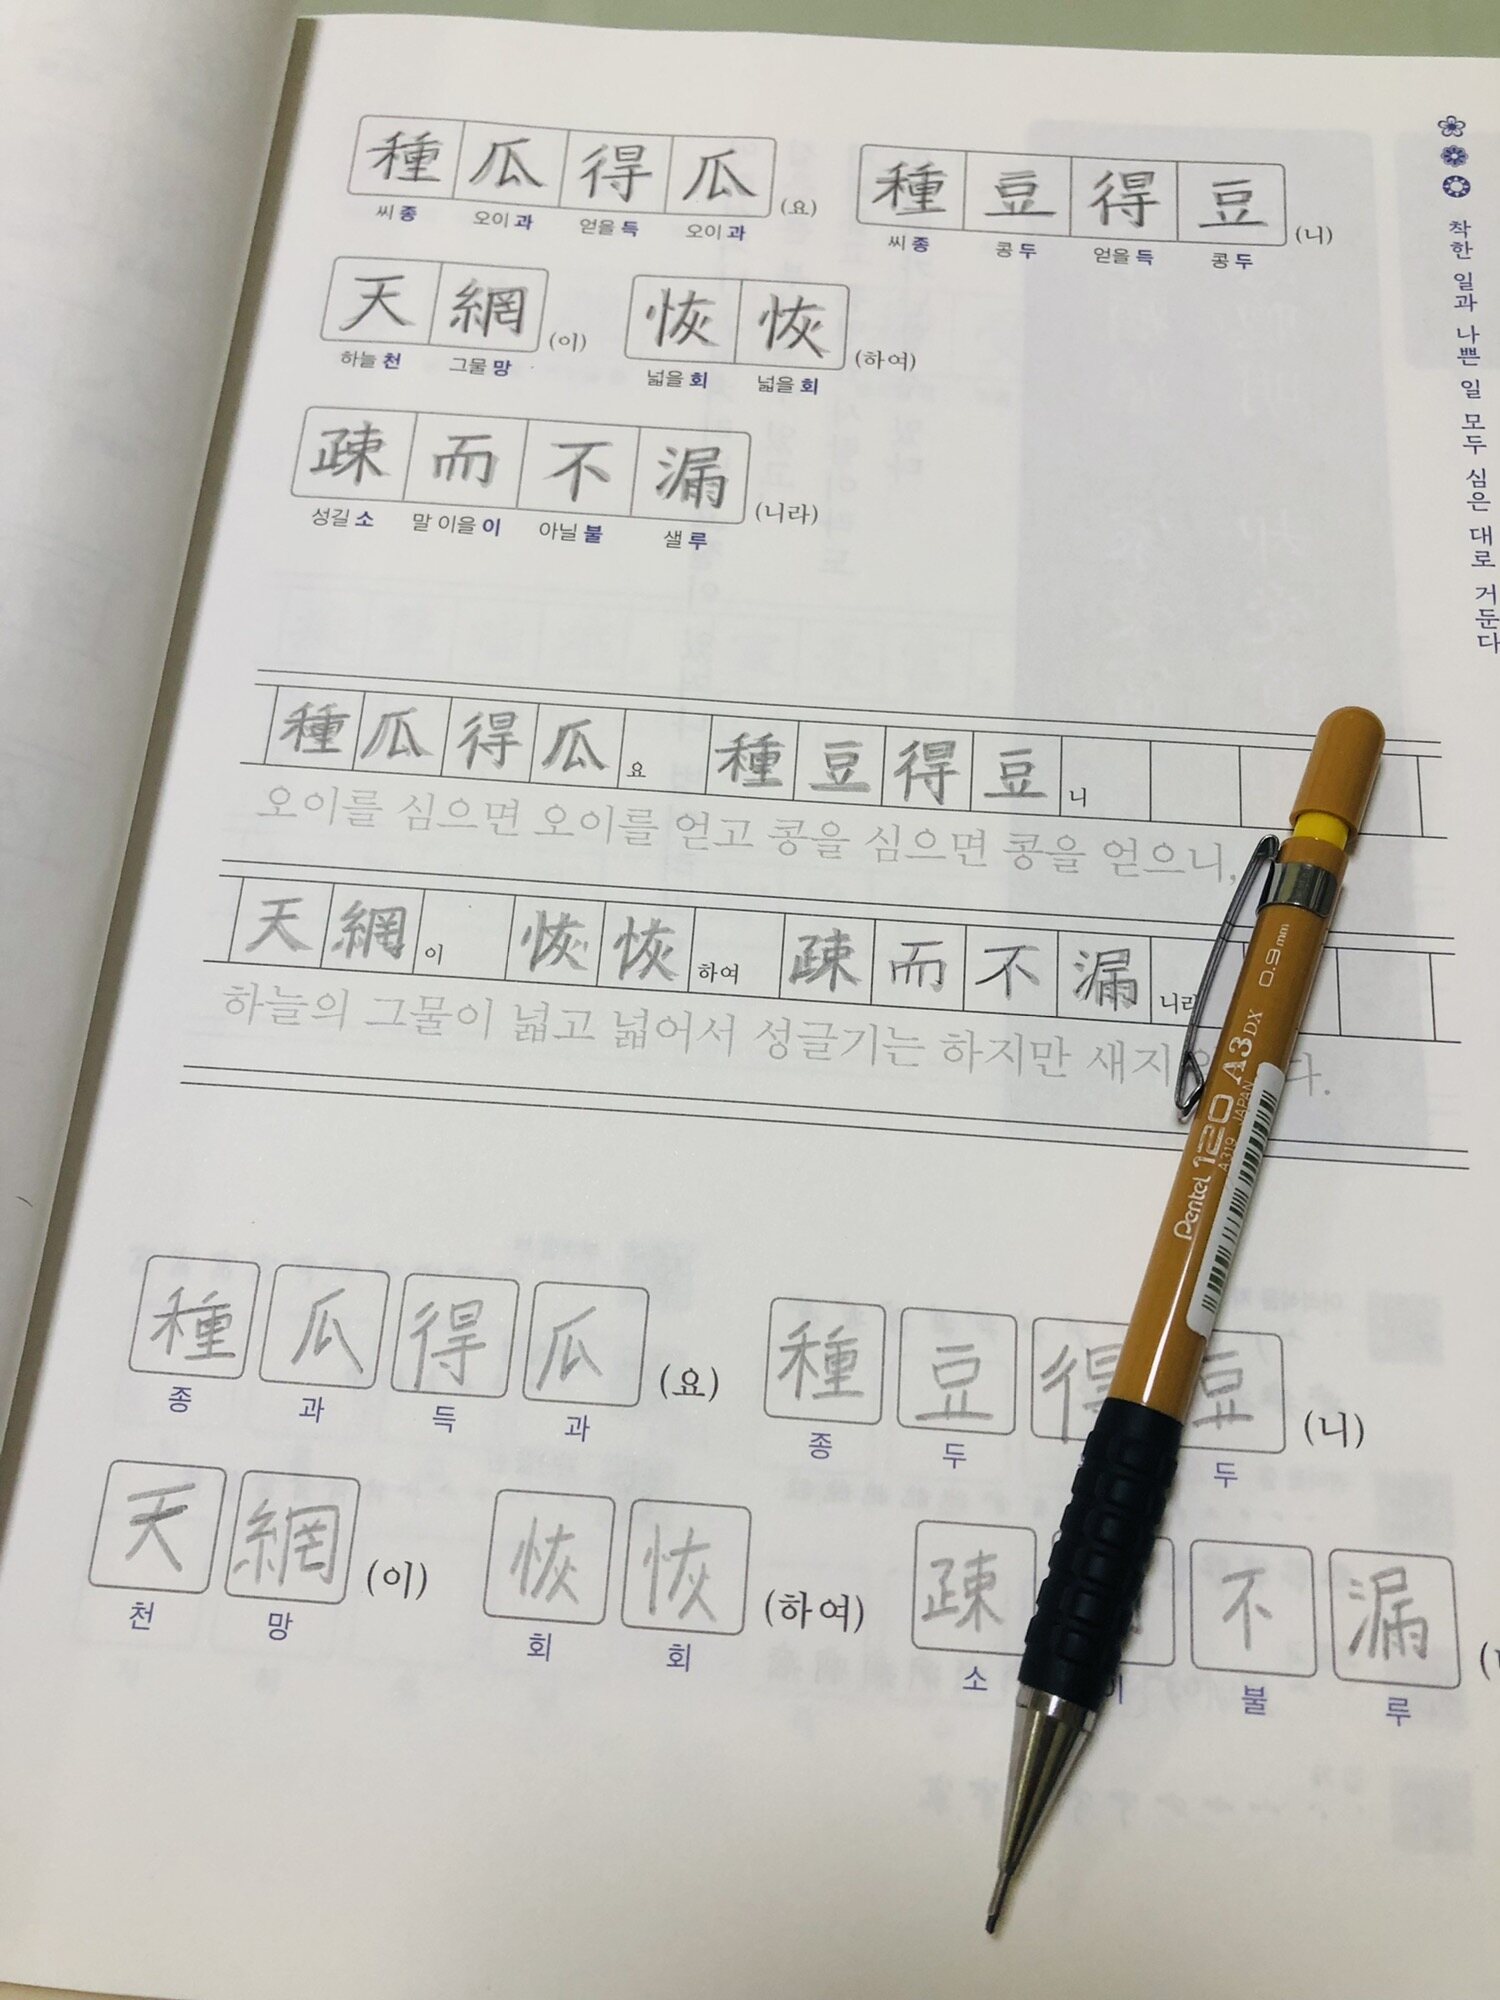 種瓜得瓜(요) 種豆得豆(니)
씨 종 오이 과 얻을 득 오이 과 씨 종 콩 두 얻을 득 콩 두
天網(이) 恢恢(하여)
하늘 천 그물 망 넓을 회 넓을 회
疎而不漏(니라)
성길 소 말 이을 이 아닐 불 샐 루
착한 일과 나쁜 일 모두 심은 대로 거둔다
種瓜得瓜요 種豆得豆니
오이를 심으면 오이를 얻고 콩을 심으면 콩을 얻으니,
天網이 恢恢하여 疎而不漏니라
하늘의 그물이 넓고 넓어서 성글기는 하지만 새지 다.
種瓜得瓜(요) 種豆得豆(니)
종 과 득 과 종 두 두
天網(이) 恢恢(하여) 疎 不漏
천 망 회 회 소 이 불 루
Pentel 120 A3DX 0.9mm
A319 JAPAN